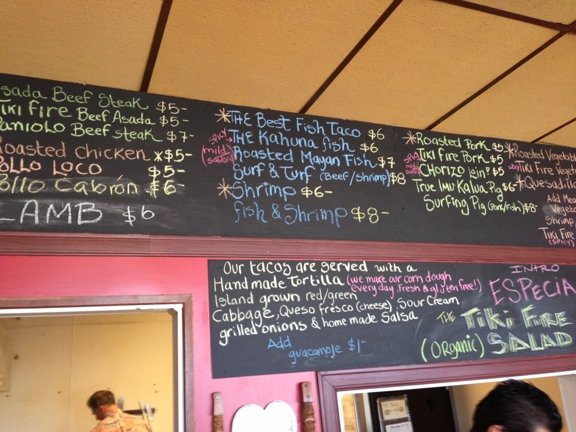 asada Beef Steak $5-
Tiki Fire Beef Asada $5-
Paniolo Beef steak $7-
Roasted Chicken *$5-
Pollo Loco $5-
Pollo Cabron $6-
LAMB $6
*THE Best Fish Taco $6
THE Kahuna fish $6
Roasted Mayan Fish $7
Surf & Turf (Beef/shrimp) $8
*Shrimp $6-
fish & Shrimp $8-
*Roasted Pork $5
Tiki Fire Pork $5
Chorizo
True Imu Kalua Pig $6
Surfing Pig (Pork/Fish) $8
*Roasted Vegetabl
Tiki Fire Veg
*Quesadill
Add Mea
Vegeta
Shrimp
Tiki Fire
(spicy)
Our tacos are served with a
Handmade Tortilla (we make our corn dough
every day, Fresh & gluten free!)
Island grown red/green
Cabbage, Queso fresco (cheese), Sour Cream
grilled onions & home made Salsa
Add
guacamole $1-
INTRO
ESPECIA
THE TIKI FIRE
(Organic) SALAD